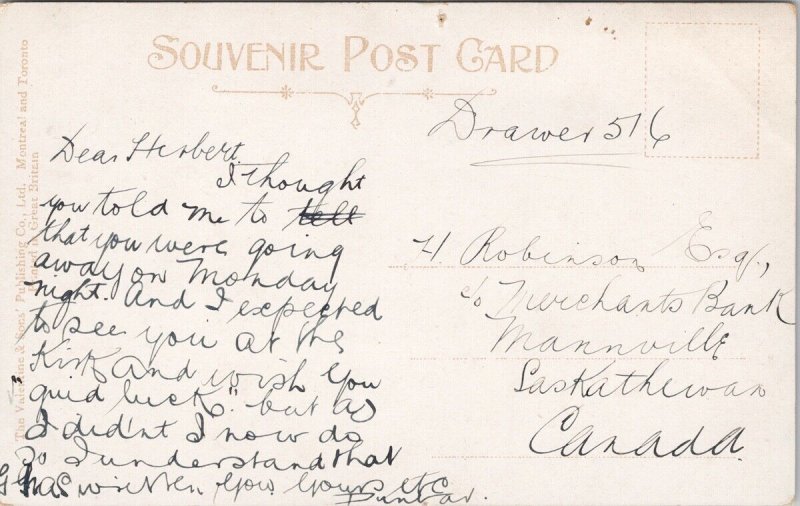 SOUVENIR POST CARD
The Valentine & Sons' Publishing Co., Ltd. Montreal and Toronto
Printed in Great Britain
Dear Herbert.
I thought
you told me to tell
that you were going
away on Monday
night. And I expected
to see you at the
Kirk and wish you
"guid luck". but as
I did'nt I now do
so I understand that
has written you Yours etc
Dunbar.
Drawer 516
H. Robinson Esq.,
c/o Merchants Bank
Mannville
Saskathewan
Canada